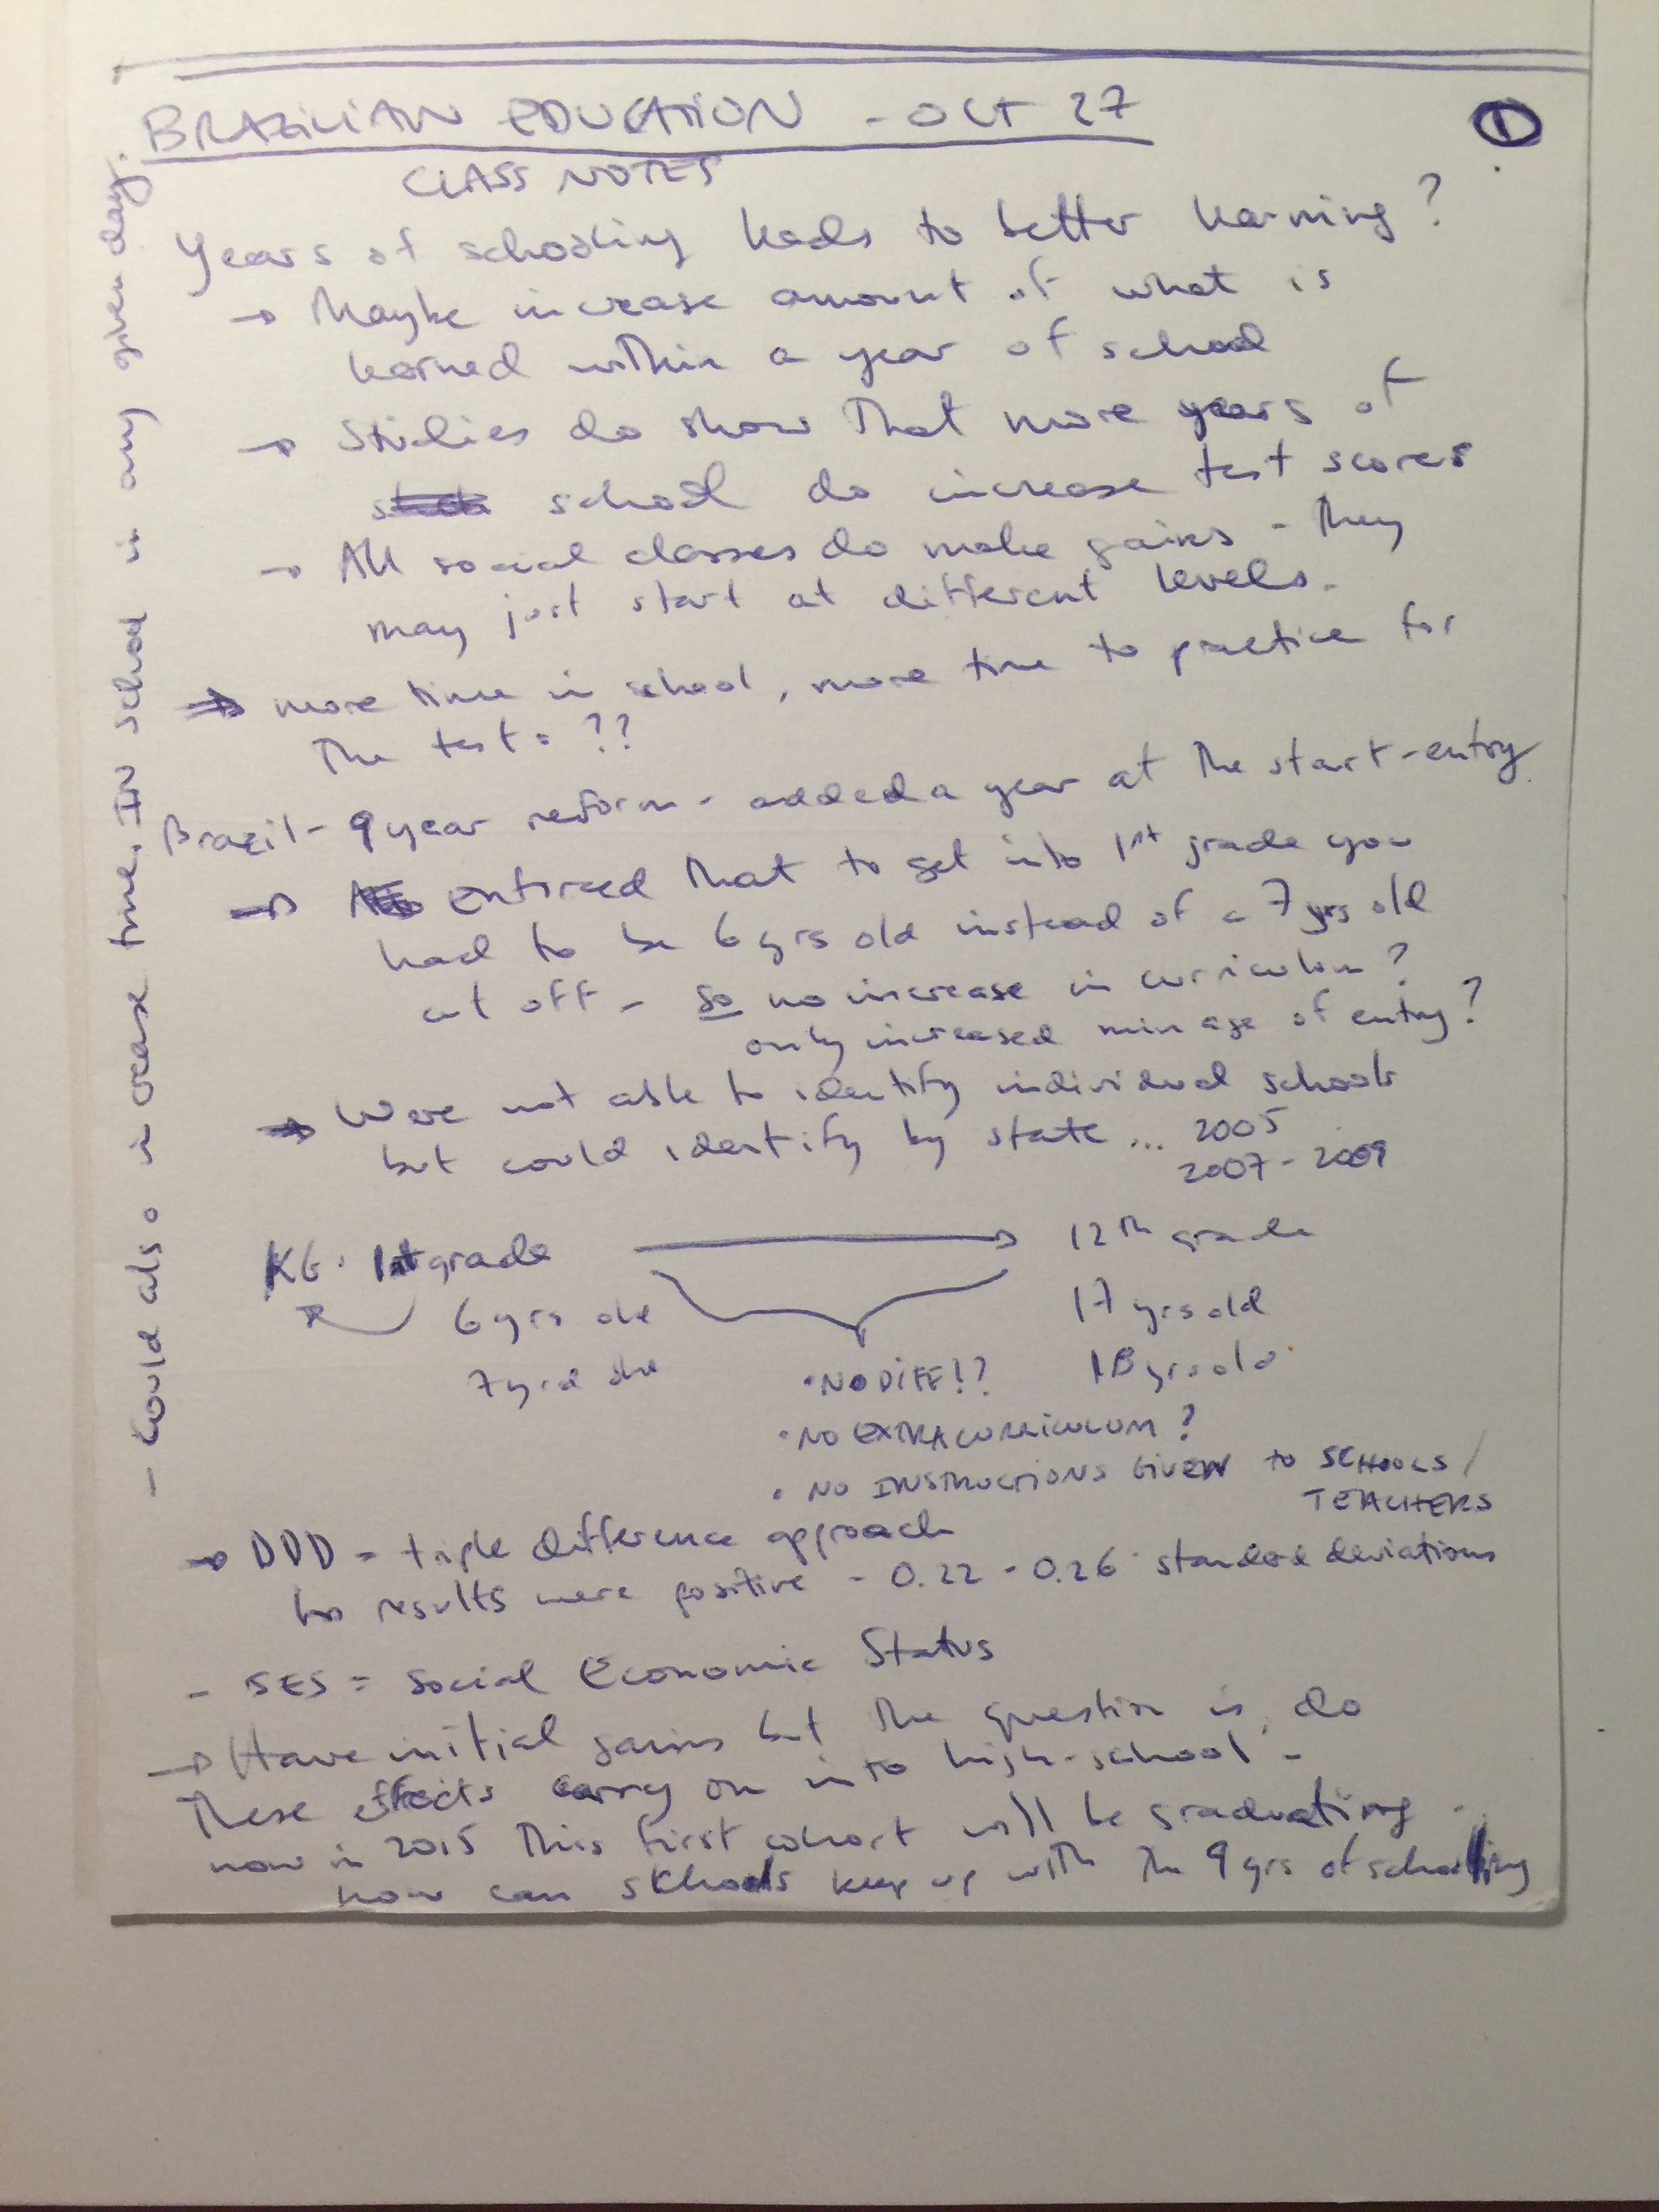 BRAZILIAN EDUCATION - OCT 27
1
CLASS NOTES
Years of schooling leads to better learning?
→ Maybe increase amount of what is
learned within a year of school
→ Studies do show that more years of
school do increase test scores
→ All social classes do make gains - they
may just start at different levels.
→ more time in school, more time to practice for
the test = ??
Brazil - 9 year reform - added a year at the start - entry
→ enforced that to get into 1st grade you
had to be 6 yrs old instead of a 7 yrs old
cut off - so no increase in curriculum?
only increased min age of entry?
→ Were not able to identify individual schools
but could identify by state ... 2005
2007 - 2009
KG · 1st grade → 12th grade
6 yrs old 17 yrs old
7 yrs old 18 yrs old
• NO DIFF!?
• NO EXTRA CURRICULUM?
• NO INSTRUCTIONS GIVEN to SCHOOLS /
TEACHERS
→ DDD = triple difference approach
results were positive - 0.22 - 0.26 standard deviations
- SES = Social Economic Status
→ Have initial gains but the question is, do
these effects carry on into high-school -
now in 2015 this first cohort will be graduating -
how can schools keep up with the 9 yrs of schooling
- Could also increase time. IN school in any given day.